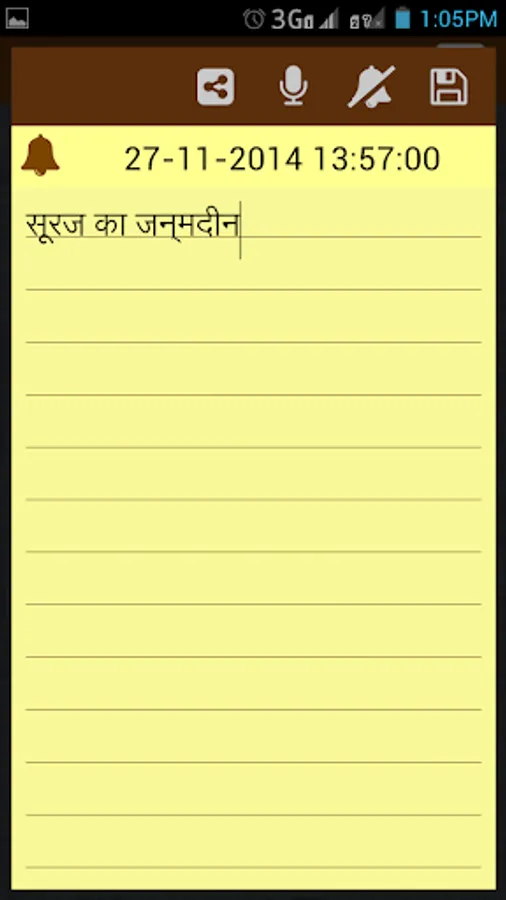 3G 1:05PM
27-11-2014 13:57:00
सूरज का जन्मदीन